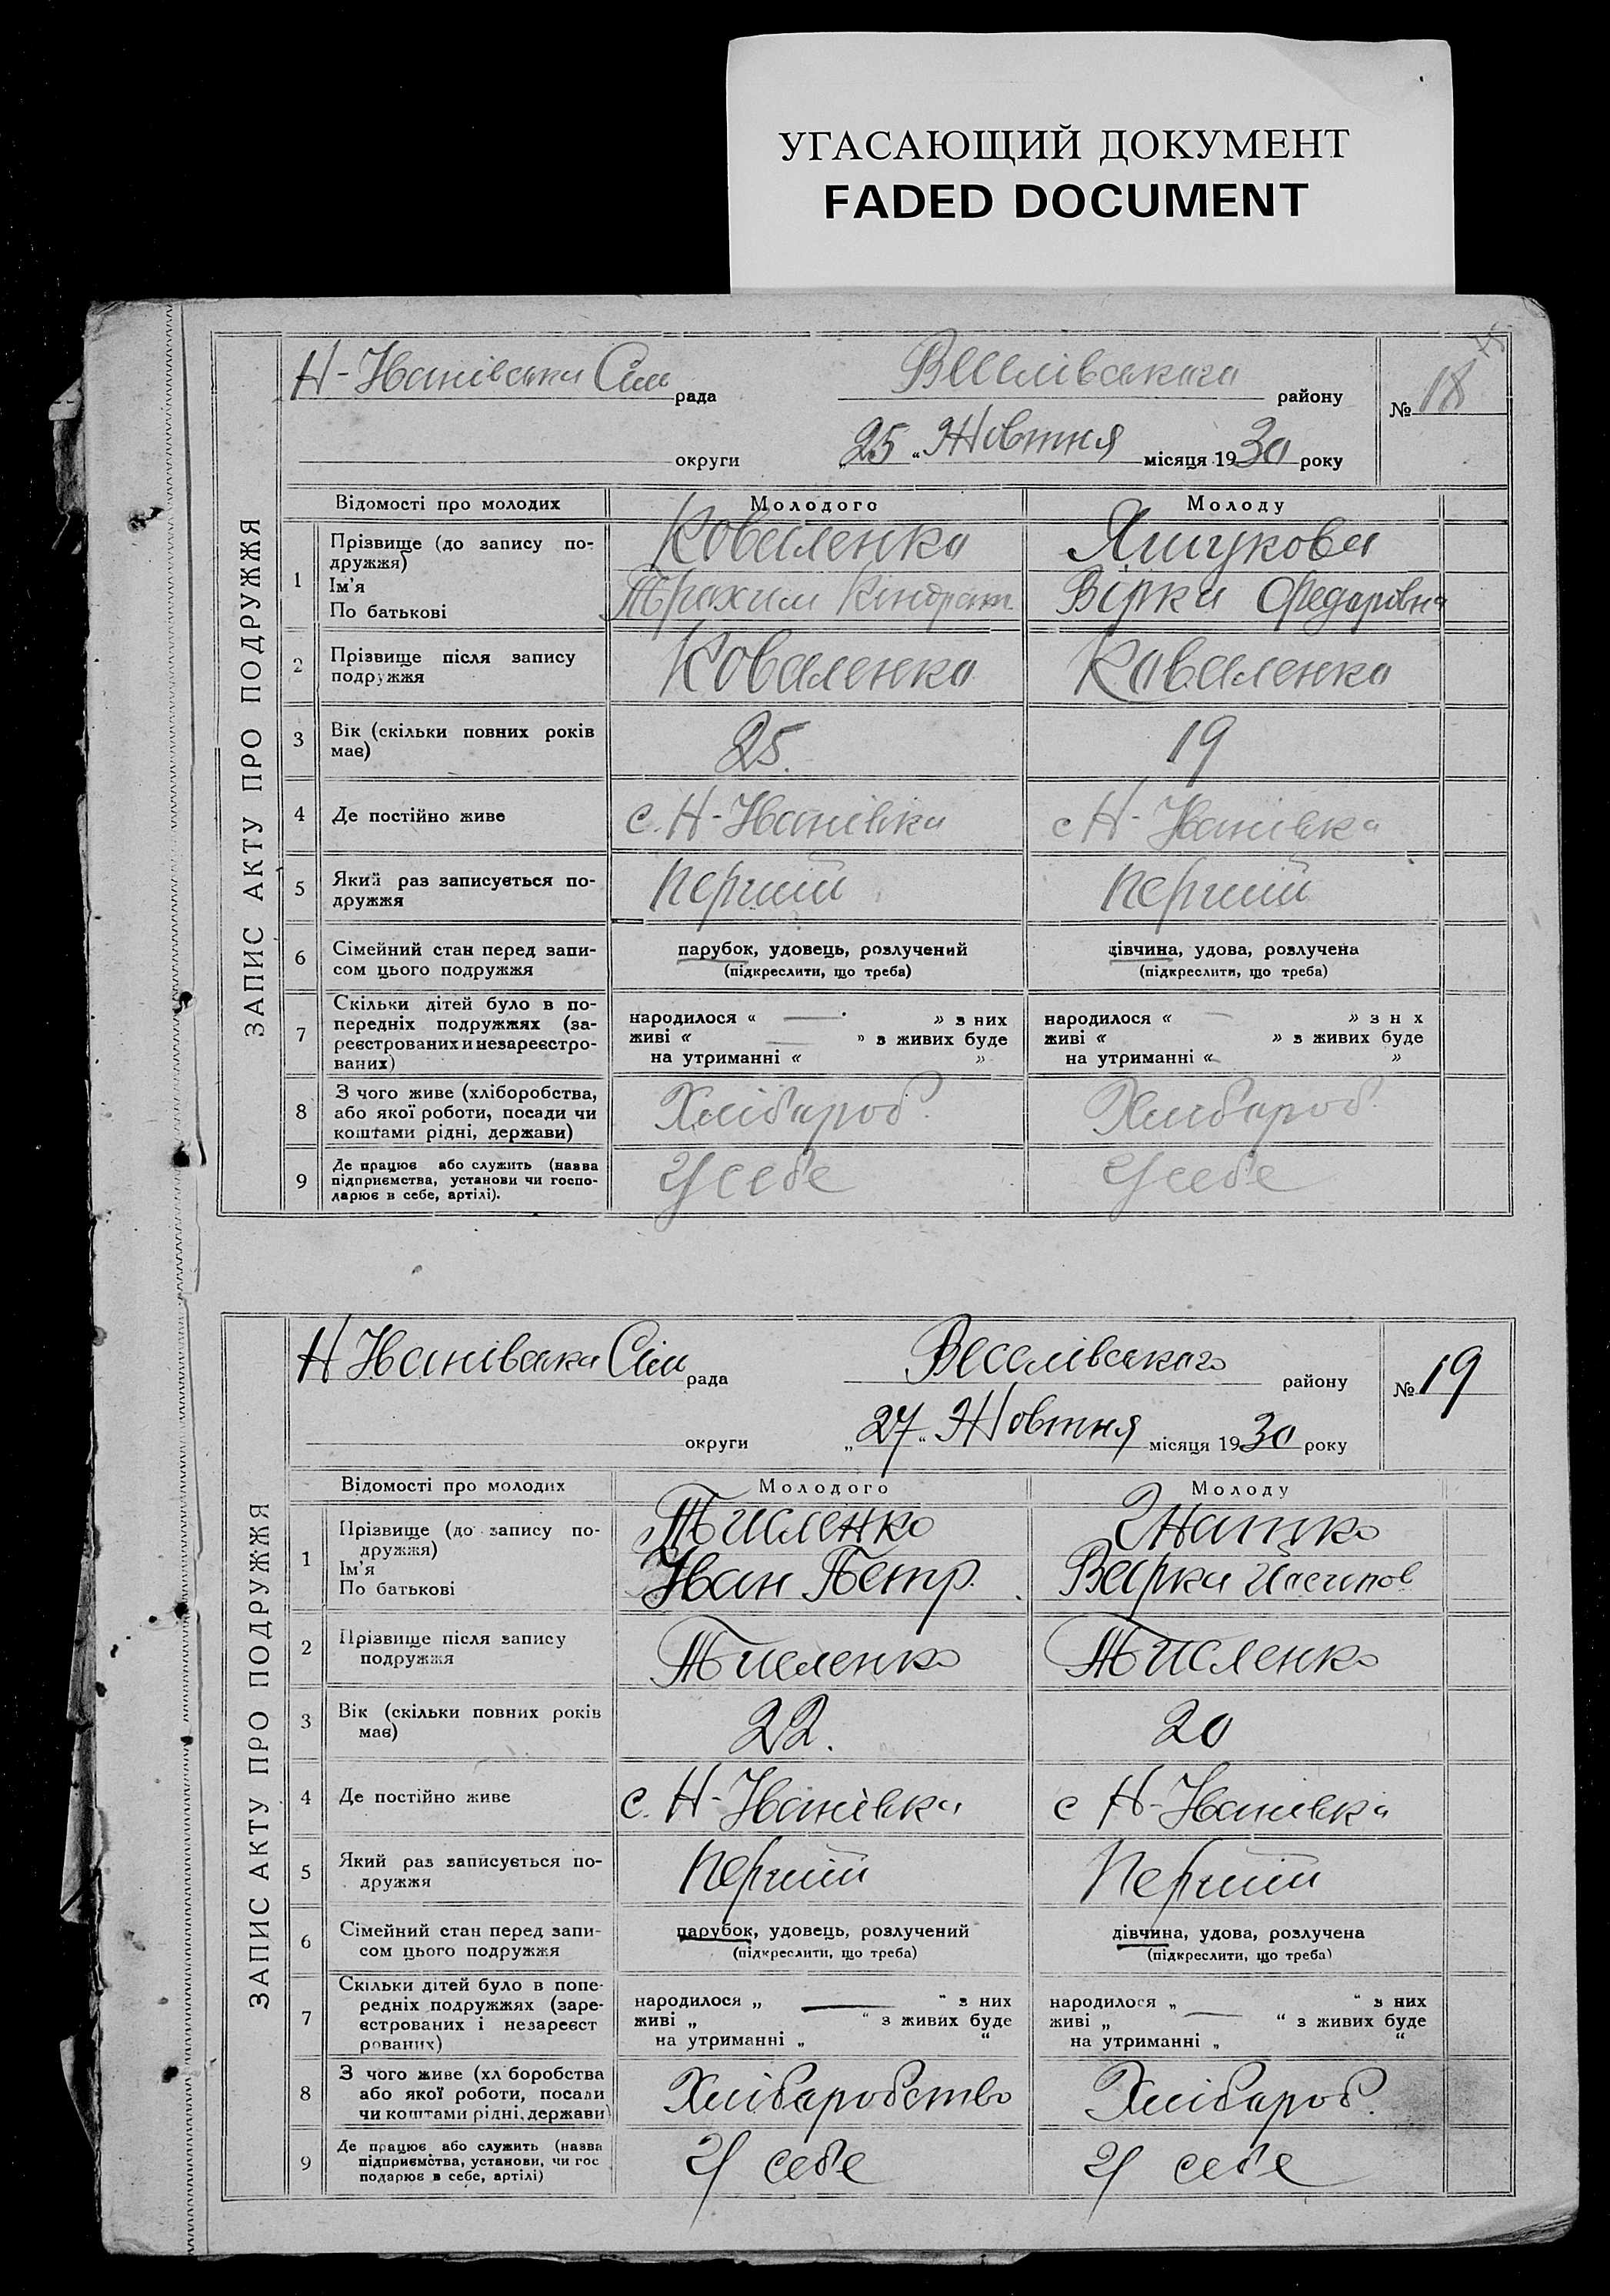 УГАСАЮЩИЙ ДОКУМЕНТ
FADED DOCUMENT
ЗАПИС АКТУ ПРО ПОДРУЖЖЯ
Н-Иванівська Сіль рада Веселівського району № 18
округи „25“ Жовтня місяця 1930 року
Відомості про молодих Молодого Молоду
1 Прізвище (до запису по-
дружжя)
Ім'я
По батькові
Коваленко
Трохим Кіндрат
Ящукова
Вірка Федаровна
2 Прізвище після запису
подружжя
Коваленко Коваленко
3 Вік (скільки повних років
має)
25. 19
4 Де постійно живе с. Н-Иванівка с Н-Иванівка
5 Який раз записується по-
дружжя
перший перший
6 Сімейний стан перед запи-
сом цього подружжя
парубок, удовець, розлучений
(підкреслити, що треба)
дівчина, удова, розлучена
(підкреслити, що треба)
7 Скільки дітей було в по-
передніх подружжях (за-
реєстрованих и незареєстро-
ваних)
народилося « — » з них
живі « — » з живих буде
на утриманні « »
народилося « — » з н х
живі « » з живих буде
на утриманні « »
8 З чого живе (хліборобства,
або якої роботи, посади чи
коштами рідні, держави)
Хлібароб. Хлибароб.
9 Де працює або служить (назва
підприємства, установи чи госпо-
дарює в себе, артілі).
У себе У себе
ЗАПИС АКТУ ПРО ПОДРУЖЖЯ
Н Иванівська Сіль рада Веселівського району № 19
округи „27“ Жовтня місяця 1930 року
Відомості про молодих Молодого Молоду
1 Прізвище (до запису по-
дружжя)
Ім'я
По батькові
Тисленко
Иван Петр.
Варка
2 Прізвище після запису
подружжя
Тисленко Тисленко
3 Вік (скільки повних років
має)
22. 20
4 Де постійно живе с. Н-Иванівка с Н-Иванівка
5 Який раз записується по-
дружжя
перший Перший
6 Сімейний стан перед запи-
сом цього подружжя
парубок, удовець, розлучений
(підкреслити, що треба)
дівчина, удова, розлучена
(підкреслити, що треба)
7 Скільки дітей було в попе-
редніх подружжях (заре-
єстрованих і незареєст
рованих)
народилося „ — “ з них
живі „ “ з живих буде
на утриманні „ “
народилося „ — “ з них
живі „ “ з живих буде
на утриманні „ “
8 З чого живе (хл боробства
або якої роботи, посади
чи коштами рідні, держави)
Хлібаробство Хлібароб.
9 Де працює або служить (назва
підприємства, установи, чи гос
подарює в себе, артілі)
У себе У себе